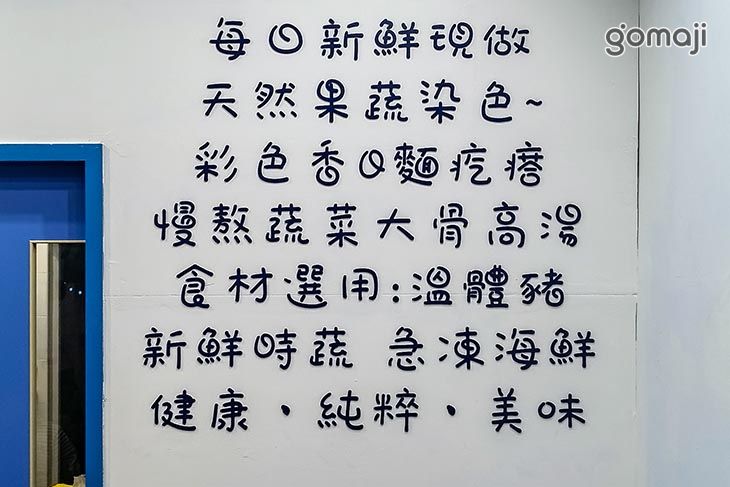 gomaji
每日新鮮現做
天然果蔬染色~
彩色香Q麵疙瘩
慢熬蔬菜大骨高湯
食材選用:溫體豬
新鮮時蔬 急凍海鮮
健康・純粹・美味